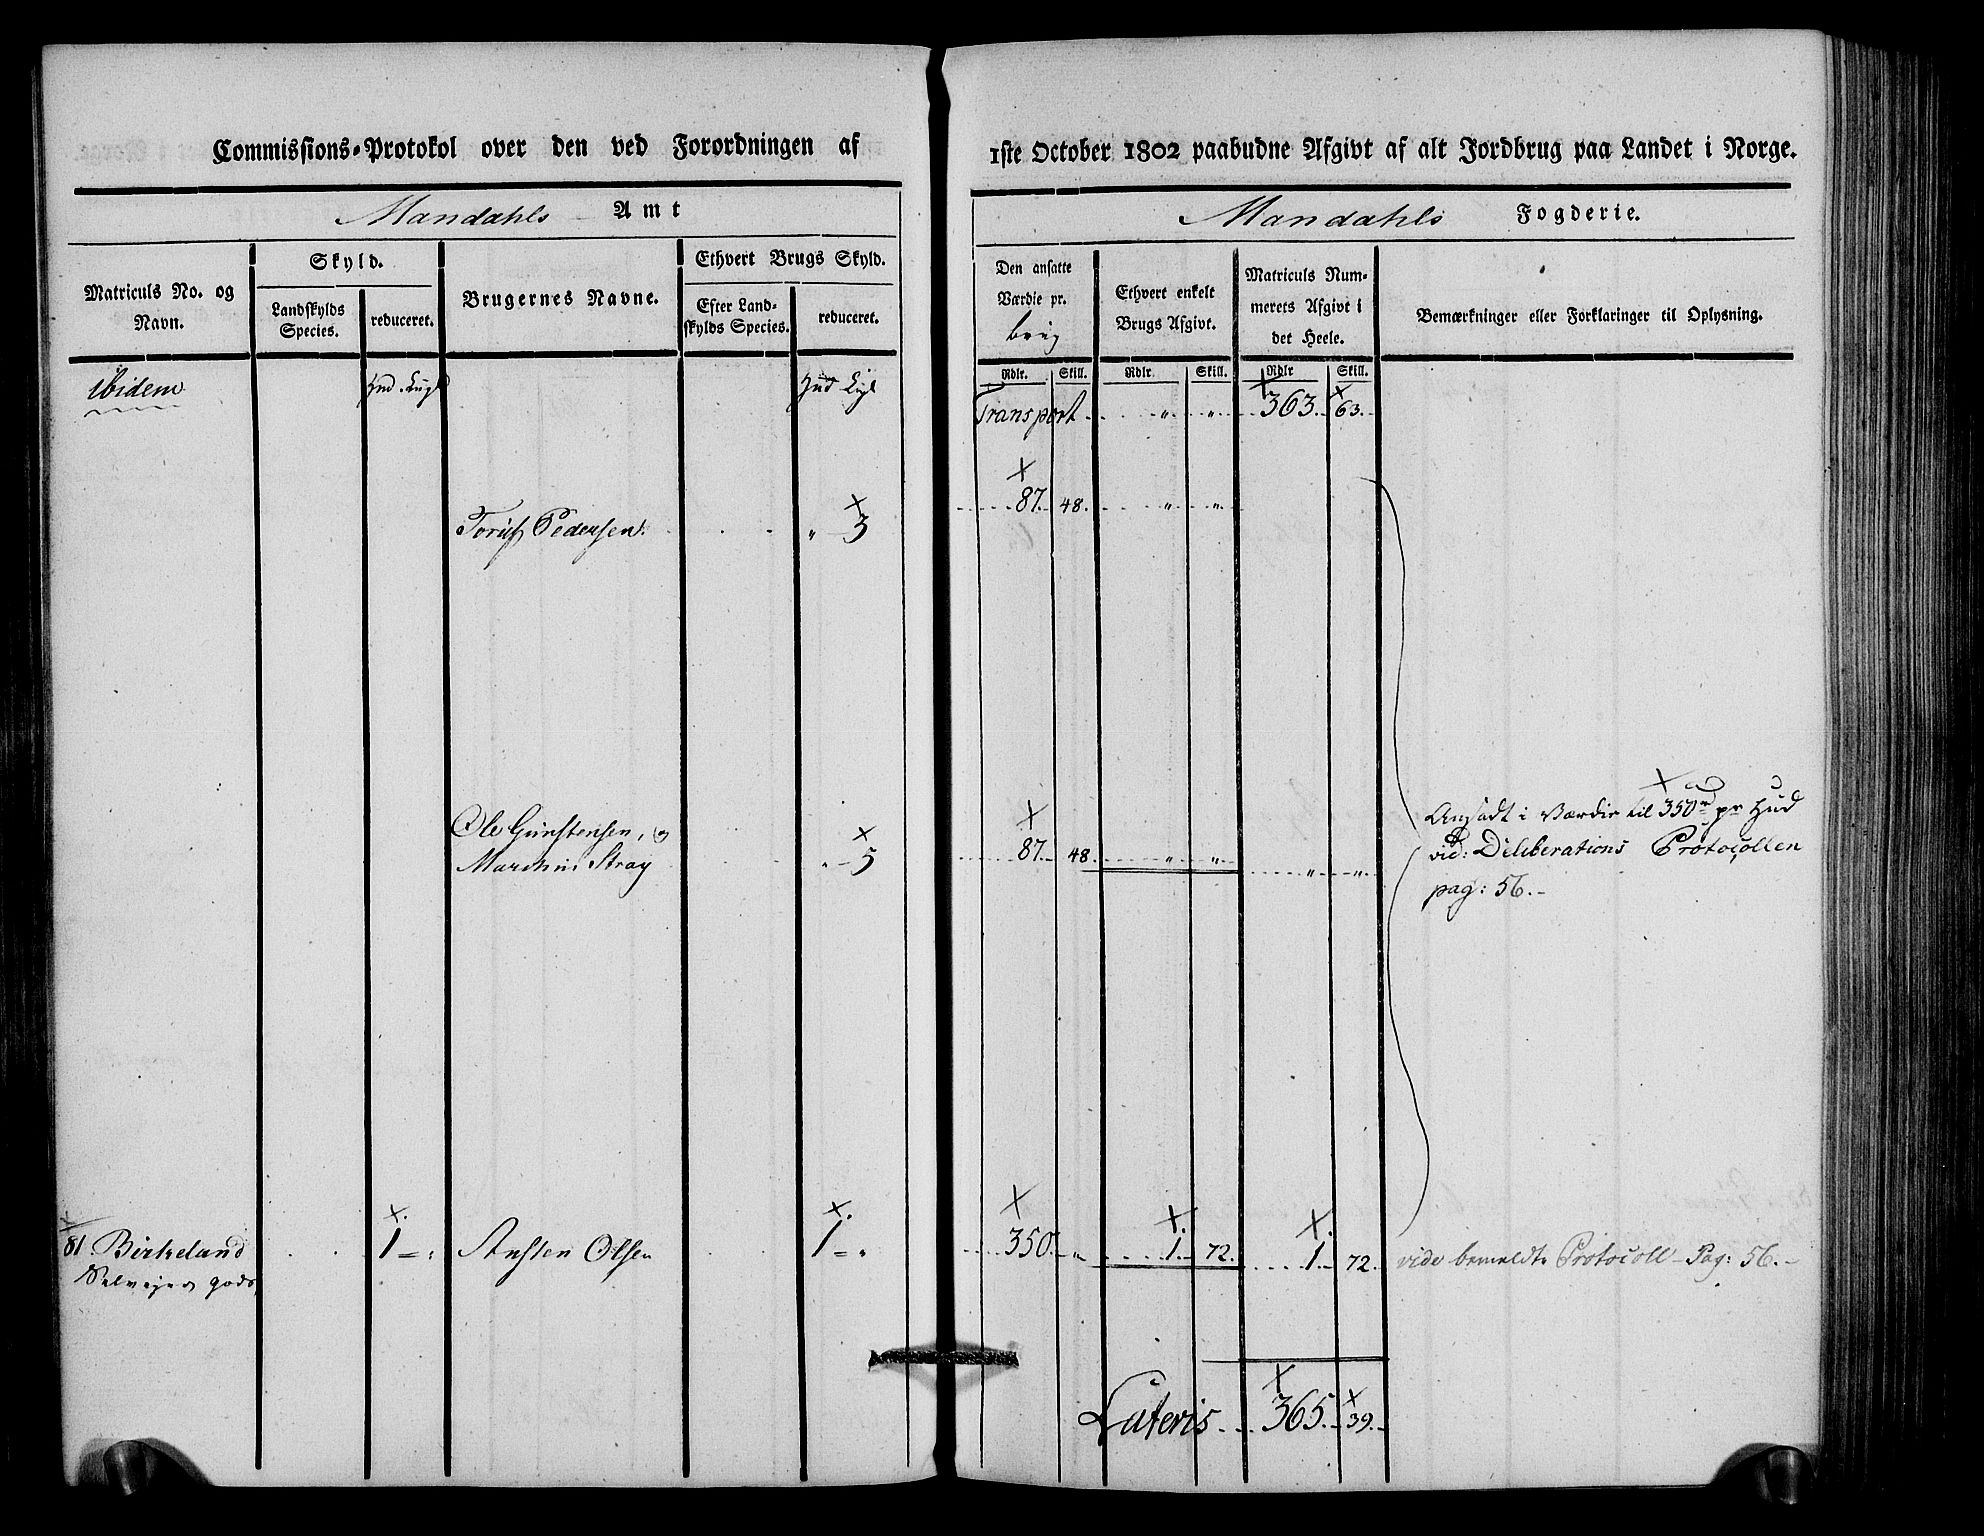 Commissions-Protokol over den ved Forordningen af 1ste October 1802 paabudne Afgivt af alt Jordbrug paa Landet i Norge.
Mandahls Amt
Mandahls Fogderie.
Matriculs No. og
Navn.
Skyld.
Landskylds
Species.
reduceret.
Brugernes Navne.
Ethvert Brugs Skyld.
Efter Land-
skylds Species.
reduceret.
Den ansatte
Værdie pr.
brug
Ethvert enkelt
Brugs Afgivt.
Matriculs Num-
merets Afgivt i
det Heele.
Bemærkninger eller Forklaringer til Oplysning.
Rdlr. Skill. Rdlr Skill. Rdlr Skill.
ibidem Hud Hud
Transport " " 363. 63.
Pedersen " 3 87. 48. " "
Ole Gunstensen, og
Stray " 5 87. 48. " " " "
Ansadt i Værdie til 350 rd pr Hud
vid: Deliberations Protocollen
pag: 56.
81. Birkeland 1 = " Ansten Olsen 1 = " 350. " 1. 72. 1. 72. vide bemeldte Protocoll - Pag: 56.
Selvejer gods
Lateris 365. 39.